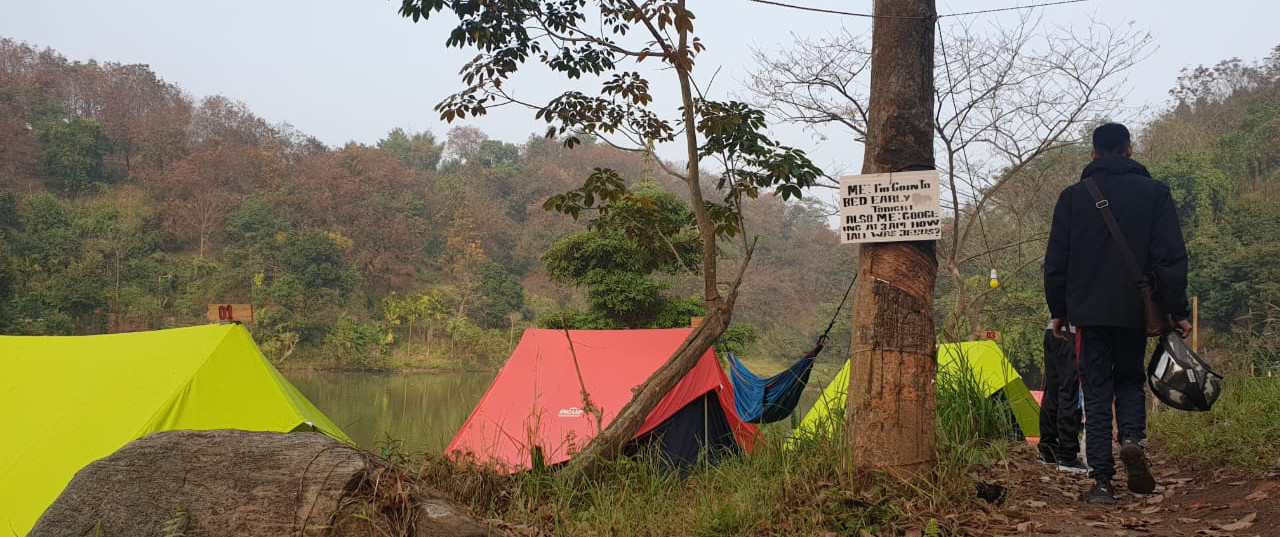 01
ME: I'm GOIN to
BED EARLY
TONIGHT
ALSO ME: GOOGL
ING AT 3 AM HOW
TALL WAS JESUS?